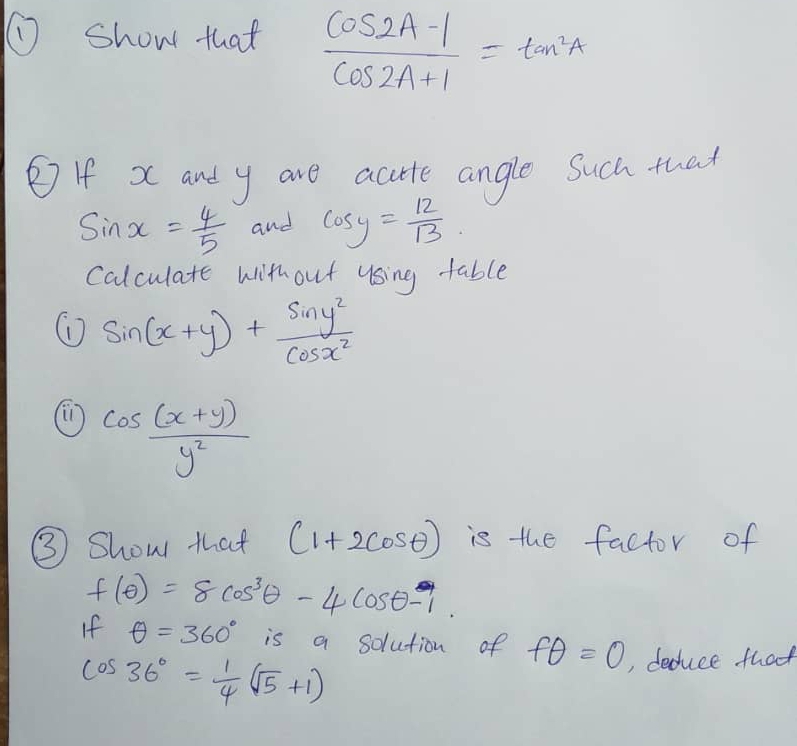 ① Show that cos2A-1 / cos2A+1 = tan²A
② If x and y are acute angle such that
Sinx = 4/5 and Cosy = 12/13.
Calculate without using table
(i) Sin(x+y) + Siny² / Cosx²
(ii) Cos (x+y) / y²
③ Show that (1+2cosθ) is the factor of
f(θ) = 8cos³θ - 4cosθ-1.
If θ = 360° is a solution of fθ = 0, deduce that
Cos 36° = 1/4 (√5 +1)